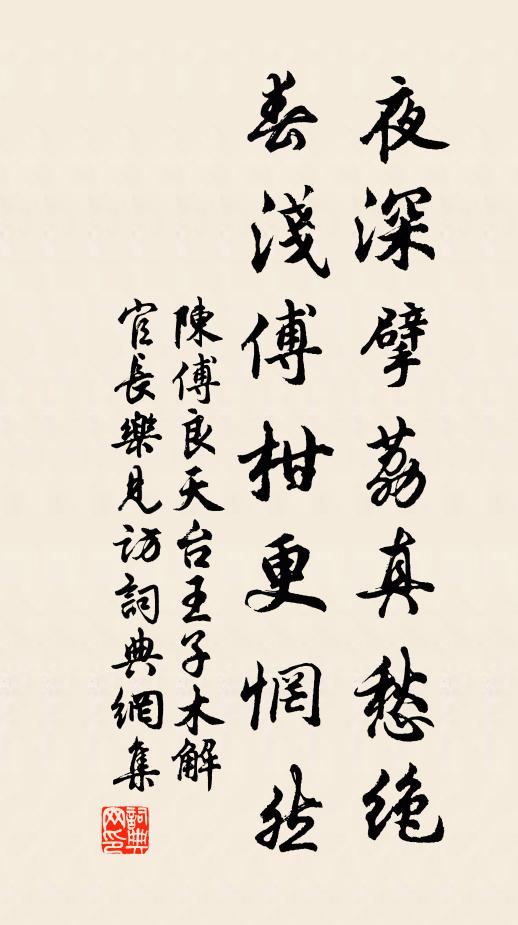 夜深擘荔真愁絶
春淺傳柑更惘然
陳傅良天台王子木解
官長樂見訪詞典網集
詞典网印